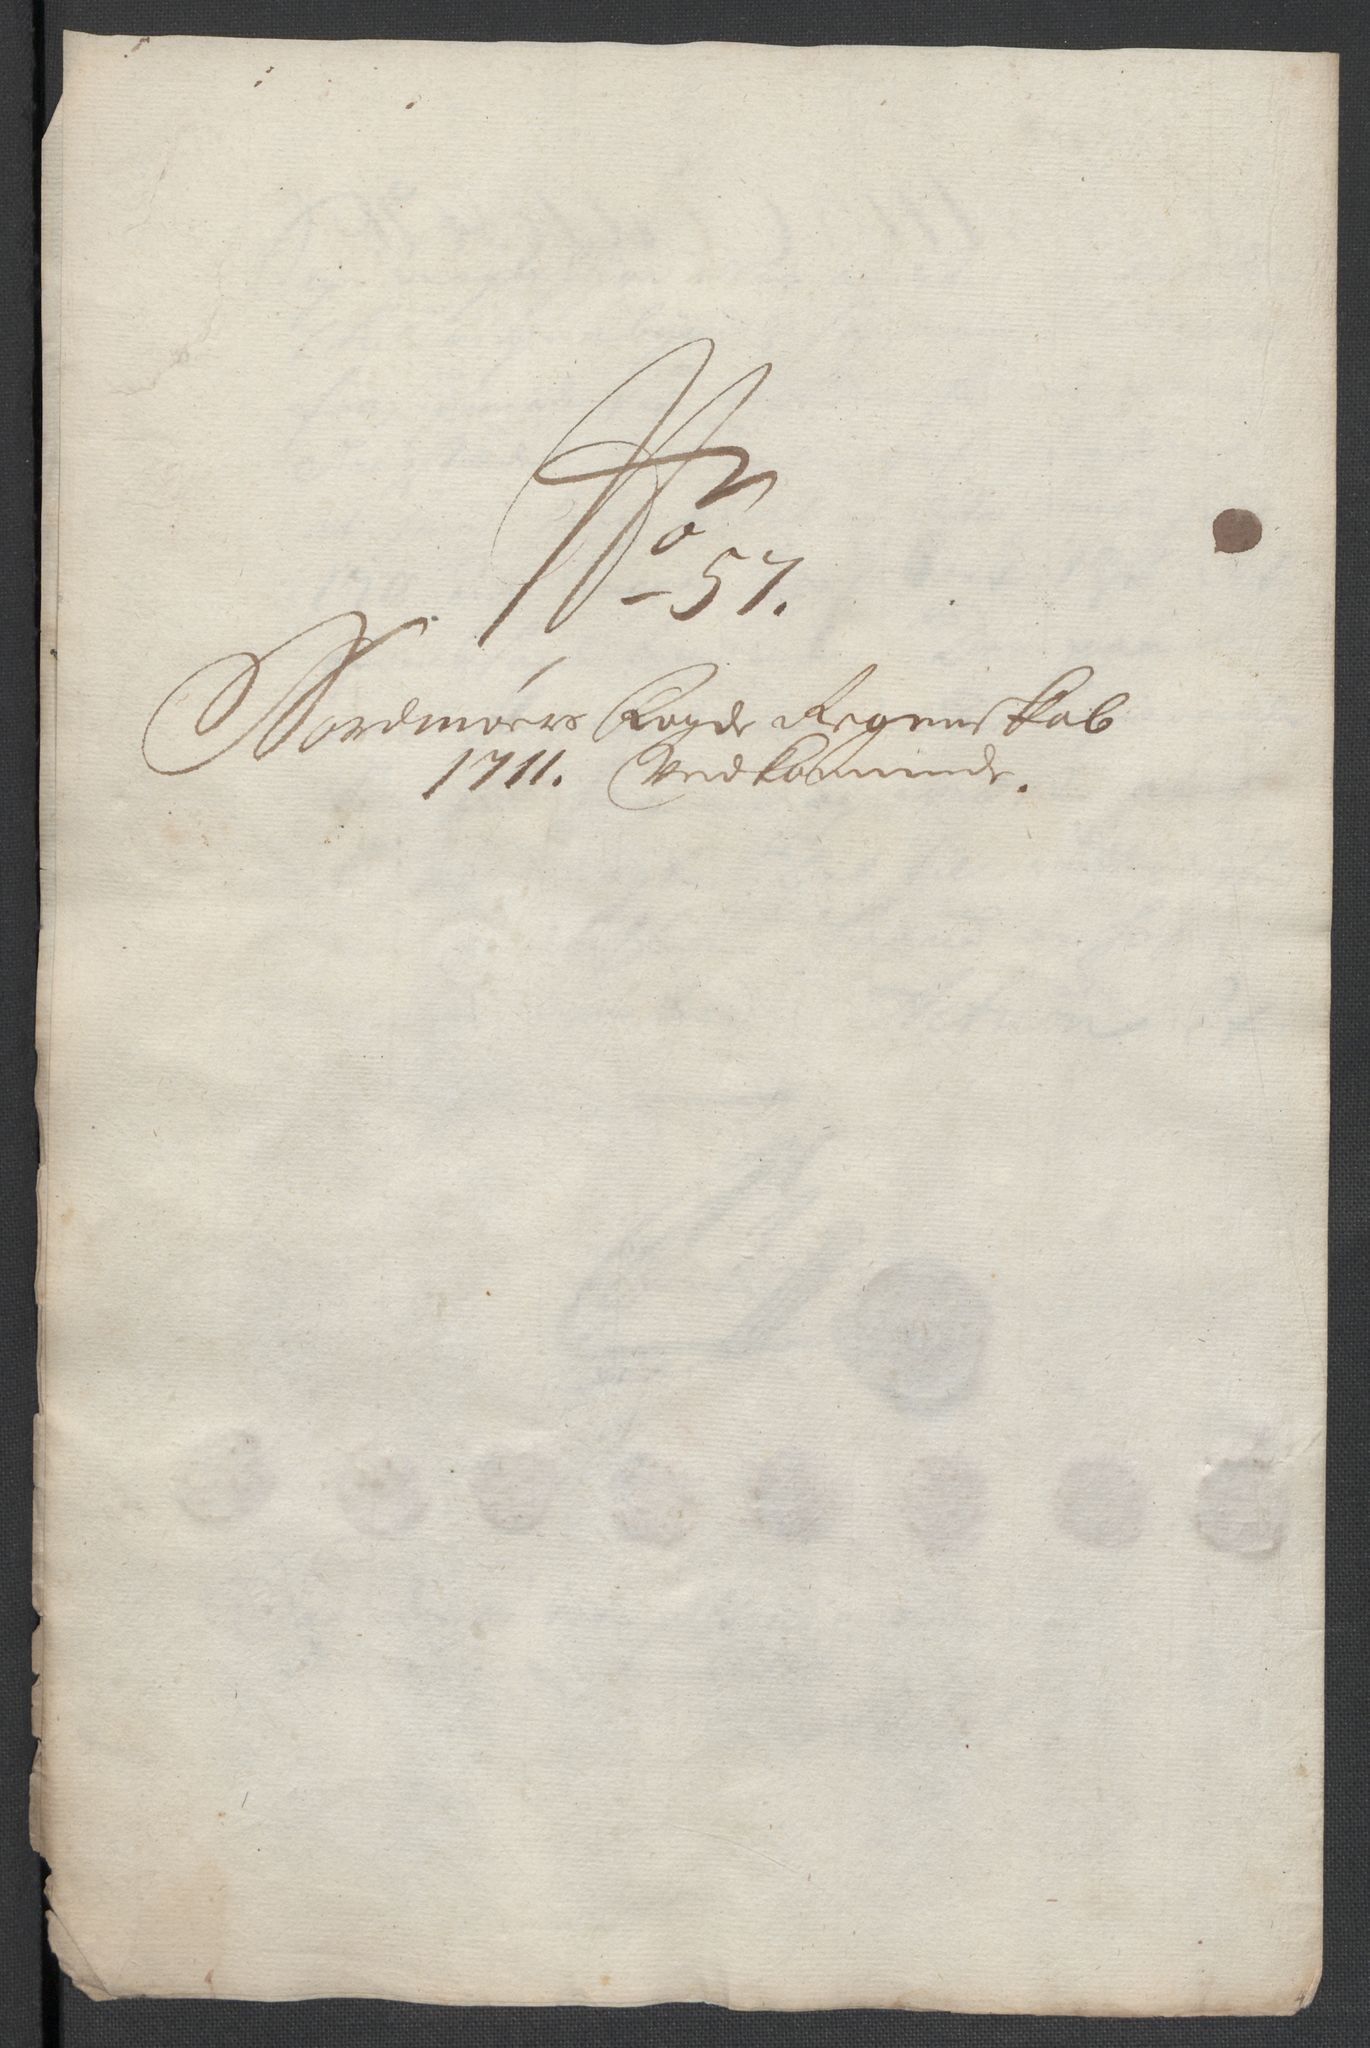 No
57.
Nordmørs Fogde Regenskab
1711. Vedkommende.